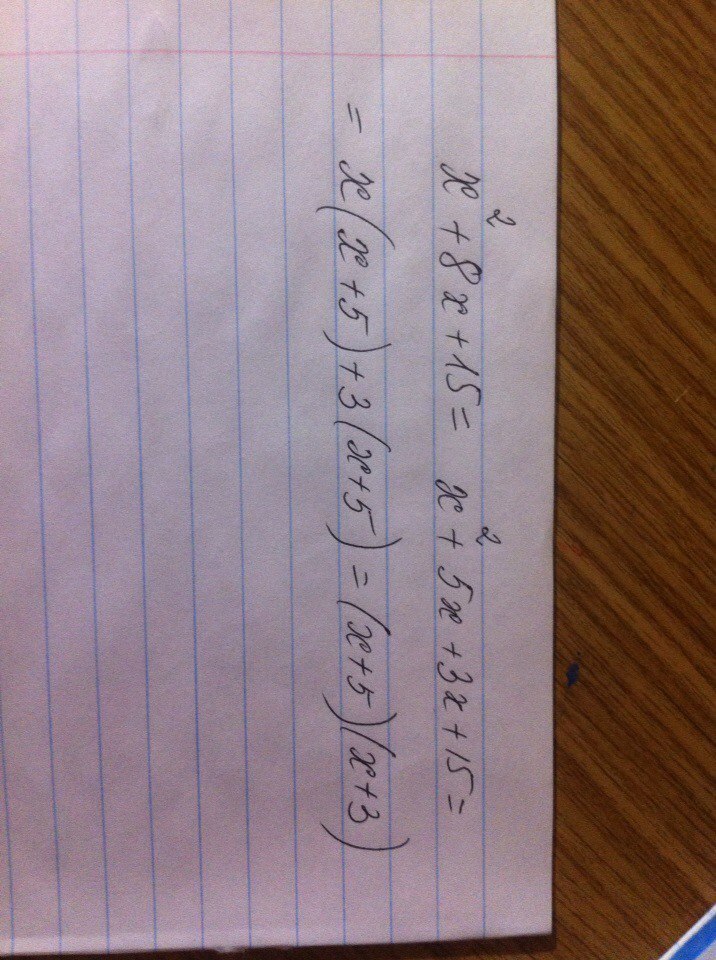 x² + 8x + 15 = x² + 5x + 3x + 15 =
= x(x + 5) + 3(x + 5) = (x + 5)(x + 3)